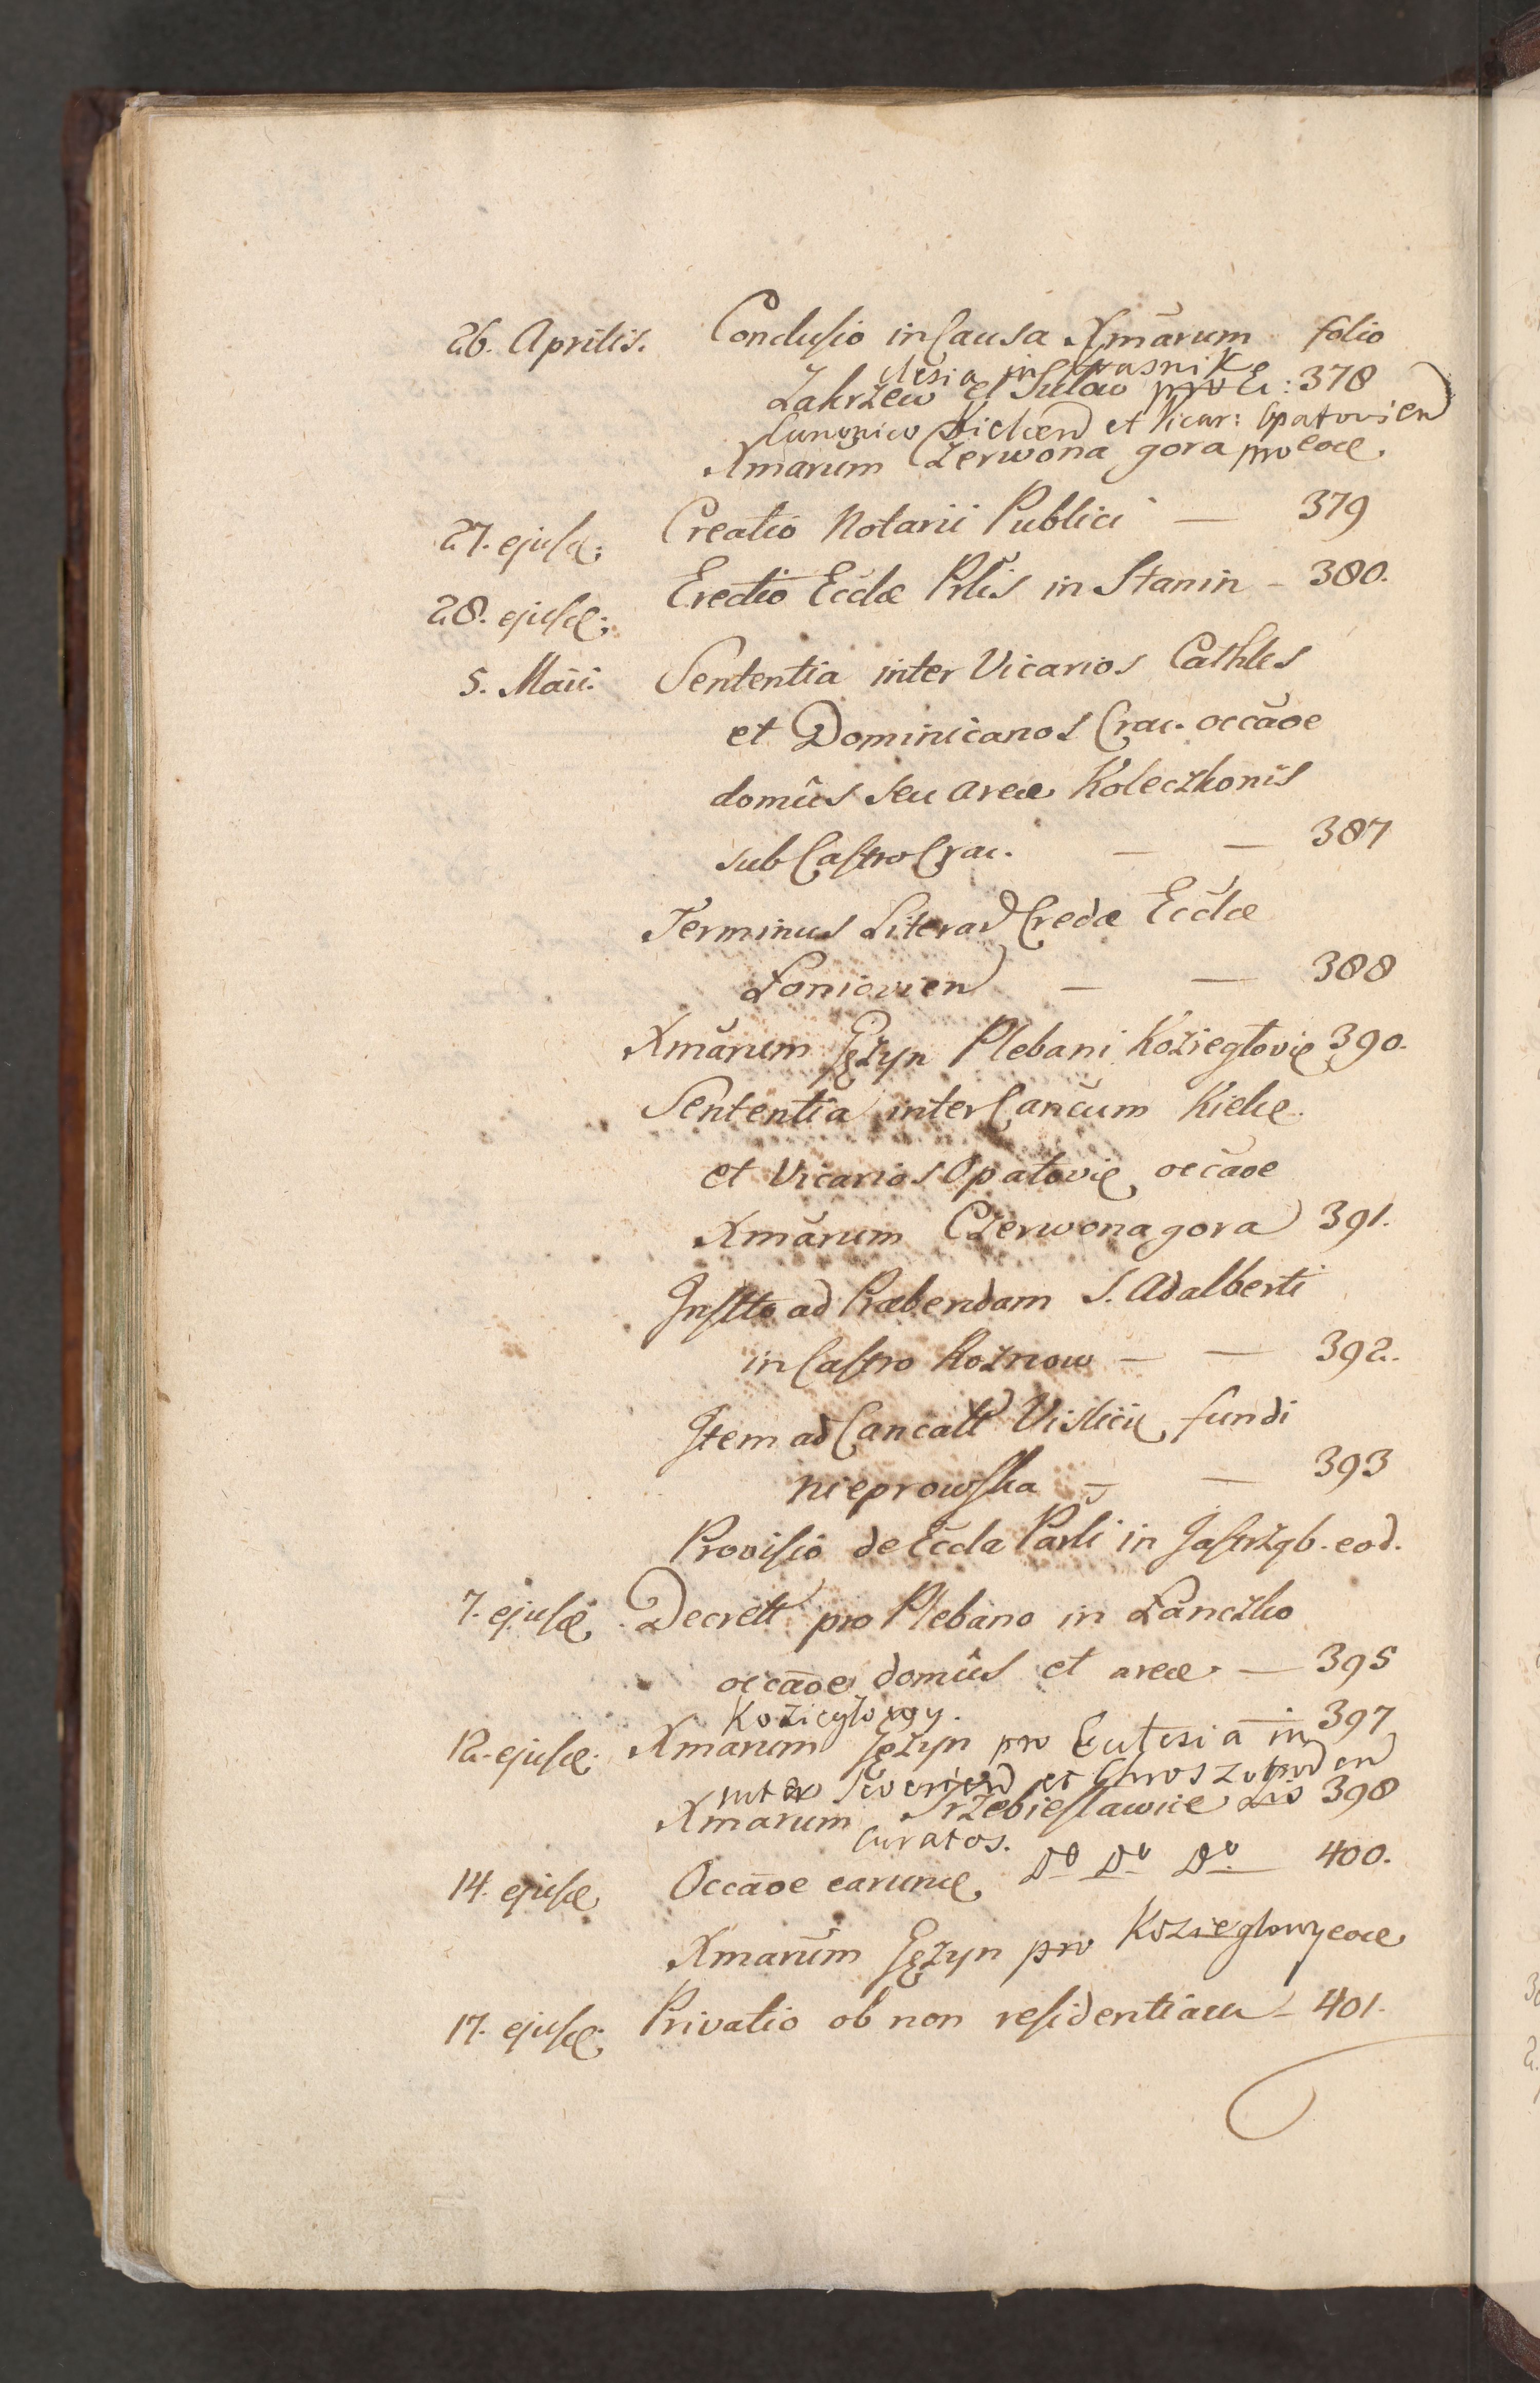 26. Aprilis. Conclusio in Causa Xmãrum folio
clesia in Krasnik
Zakrzew et Sulow pro Ec: 378
Canonico Kielcen et Vicar: Opatovien
Xmarum Czerwona gora pro eod.
27. ejusd: Creatio Notarii Publici — 379
28. ejusd: Erectio Eccłæ Prlis in Stanin - 380.
5. Maii. Sententia inter Vicarios Cathles
et Dominicanos Crac. occãoe
domûs seu areæ Koleczkonis
sub Castro Crac. — — 387
Terminus Literar Credæ Eccłæ
Łoniovien — — 388
Xmãrum Jężyn Plebani Koziegłovie 390.
Sententia inter Cancum Kielce.
et Vicarios Opatovie, occãoe
Xmãrum Czerwona gora 391.
Instto ad Præbendam S. Adalberti
in Castro Rożnow — — 392.
Item ad Cancatt Vislicie fundi
nieprowska — — 393
Provisio de Eccla Parli in Jastrząb. eod.
7. ejusd Decrett pro Plebano in Łanczko
occãoe domûs et areæ. — 395
Kozieglowy.
12. ejusd. Xmarum Jężyn pro Ecclesia in 397
inter Severien et Chroszobroden
Xmarum Trzebiesławice 398
Curatos.
14. ejusd Occãoe earund, Do Do Do — 400.
Xmarum Jężyn pro Kozieglowy eod
17. ejusd: Privatio ob non residentiam - 401.